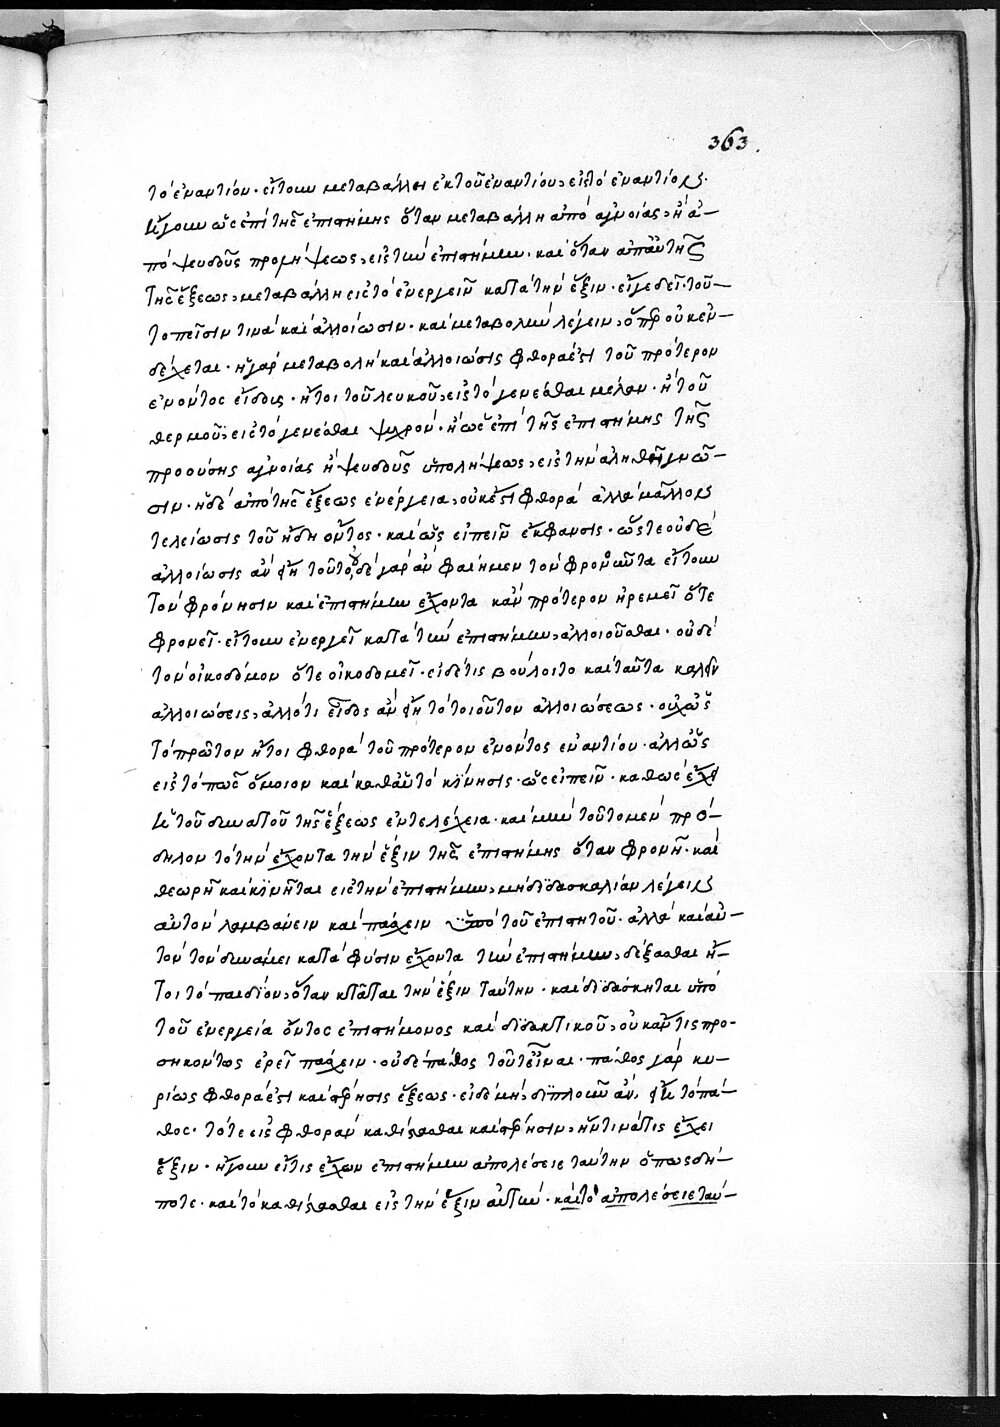 363.
τὸ ἐναντίον. εἴτουν μεταβάλλει ἐκ τοῦ ἐναντίου, εἰς τὸ ἐναντίον.
ἤγουν ὡς ἐπὶ τῆς ἐπιστήμης ὅταν μεταβάλλη ἀπὸ ἀγνοίας, ἢ ἀ-
πὸ ψευδοῦς προμήψεως, εἰς τὴν ἐπιστήμην. καὶ ὅταν ἀπ' αὐτῆς
τῆς ἕξεως, μεταβάλλη εἰς τὸ ἐνεργεῖν κατὰ τὴν ἕξιν. εἴγε δεῖ τοῦ-
το πεῖσιν τινὰ καὶ ἀλλοίωσιν. καὶ μεταβολὴν λέγειν, ὅπερ οὐκ ἐν-
δέχεται. ἡ γὰρ μεταβολὴ καὶ ἀλλοίωσις φθορά ἐστι τοῦ πρότερον
ἐνόντος εἴδους. ἤτοι τοῦ λευκοῦ, εἰς τὸ γενέσθαι μέλαν. ἢ τοῦ
θερμοῦ, εἰς τὸ γενέσθαι ψυχρόν. ἢ ὡς ἐπὶ τῆς ἐπιστήμης τῆς
προούσης ἀγνοίας ἢ ψευδοῦς ὑπολήψεως, εἰς τὴν ἀληθῆ γνῶ-
σιν. ἡ δὲ ἀπὸ τῆς ἕξεως ἐνέργεια, οὐκ ἔστι φθορά ἀλλὰ μᾶλλον
τελείωσις τοῦ ἤδη ὄντος. καὶ ὡς εἰπεῖν ἔκφανσις. ὥστε οὐδὲ
ἀλλοίωσις ἂν εἴη τοῦτο, οὐδὲ γὰρ ἂν φαίημεν τὸν φρονοῦντα εἴτουν
τὸν φρόνησιν καὶ ἐπιστήμην ἔχοντα κἂν πρότερον ἠρεμεῖ ὅτε
φρονεῖ. εἴτουν ἐνεργεῖ κατὰ τὴν ἐπιστήμην, ἀλλοιοῦσθαι. οὐδὲ
τὸν οἰκοδόμον ὅτε οἰκοδομεῖ. εἰ δέ τις βούλοιτο καὶ ταῦτα καλεῖν
ἀλλοιώσεις, ἀλλό τι εἶδος ἂν εἴη τὸ τοιοῦτον ἀλλοιώσεως. οὐχ ὡς
τὸ πρῶτον ἤτοι φθορὰ τοῦ πρότερον ἐνόντος ἐναντίου. ἀλλ' ὡς
εἰς τὸ πῶς ὅμοιον καὶ καθ' αὑτὸ κίνησις. ὡς εἰπεῖν. καθὼς ἔχει
ἐκ τοῦ δυνατοῦ τῆς ἕξεως ἐντελέχεια. καὶ μὴν τοῦτο μὲν πρό-
δηλον τὸ τὴν ἔχοντα τὴν ἕξιν τῆς ἐπιστήμης ὅταν φρονῆ. καὶ
θεωρῆ καὶ κινῆται εἰς τὴν ἐπιστήμην, μὴ διδασκαλίαν λέγειν
αὐτὸν λαμβάνειν καὶ πάσχειν ὑπὸ τοῦ ἐπιστητοῦ. ἀλλὰ καὶ αὐ-
τὸν τὸν δυνάμει κατὰ φύσιν ἔχοντα τὴν ἐπιστήμην, δέξασθαι ἤ-
τοι τὸ παιδίον, ὅταν κτᾶται τὴν ἕξιν ταύτην. καὶ διδάσκηται ὑπὸ
τοῦ ἐνεργεία ὄντος ἐπιστήμονος καὶ διδακτικοῦ, οὐκ ἄν τις προ-
σηκόντως ἐρεῖ πάσχειν. οὐδὲ πάθος τοῦτ' εἶναι. πάθος γὰρ κυ-
ρίως φθορά ἐστι καὶ στέρησις ἕξεως. εἰ δὲ μὴ, διπλοῦν ἂν, εἴη τὸ πά-
θος. τό τε εἰς φθορὰν καθίστασθαι καὶ στέρησιν, ἥντινά τις ἔχει
ἕξιν. ἤγουν εἴ τις ἔχων ἐπιστήμην ἀπολέσειε ταύτην ὅπως δή-
ποτε. καὶ τὸ καθίστασθαι εἰς τὴν ἕξιν αὐτὴν. καὶ τὸ ἀπολέσειε ταύ-